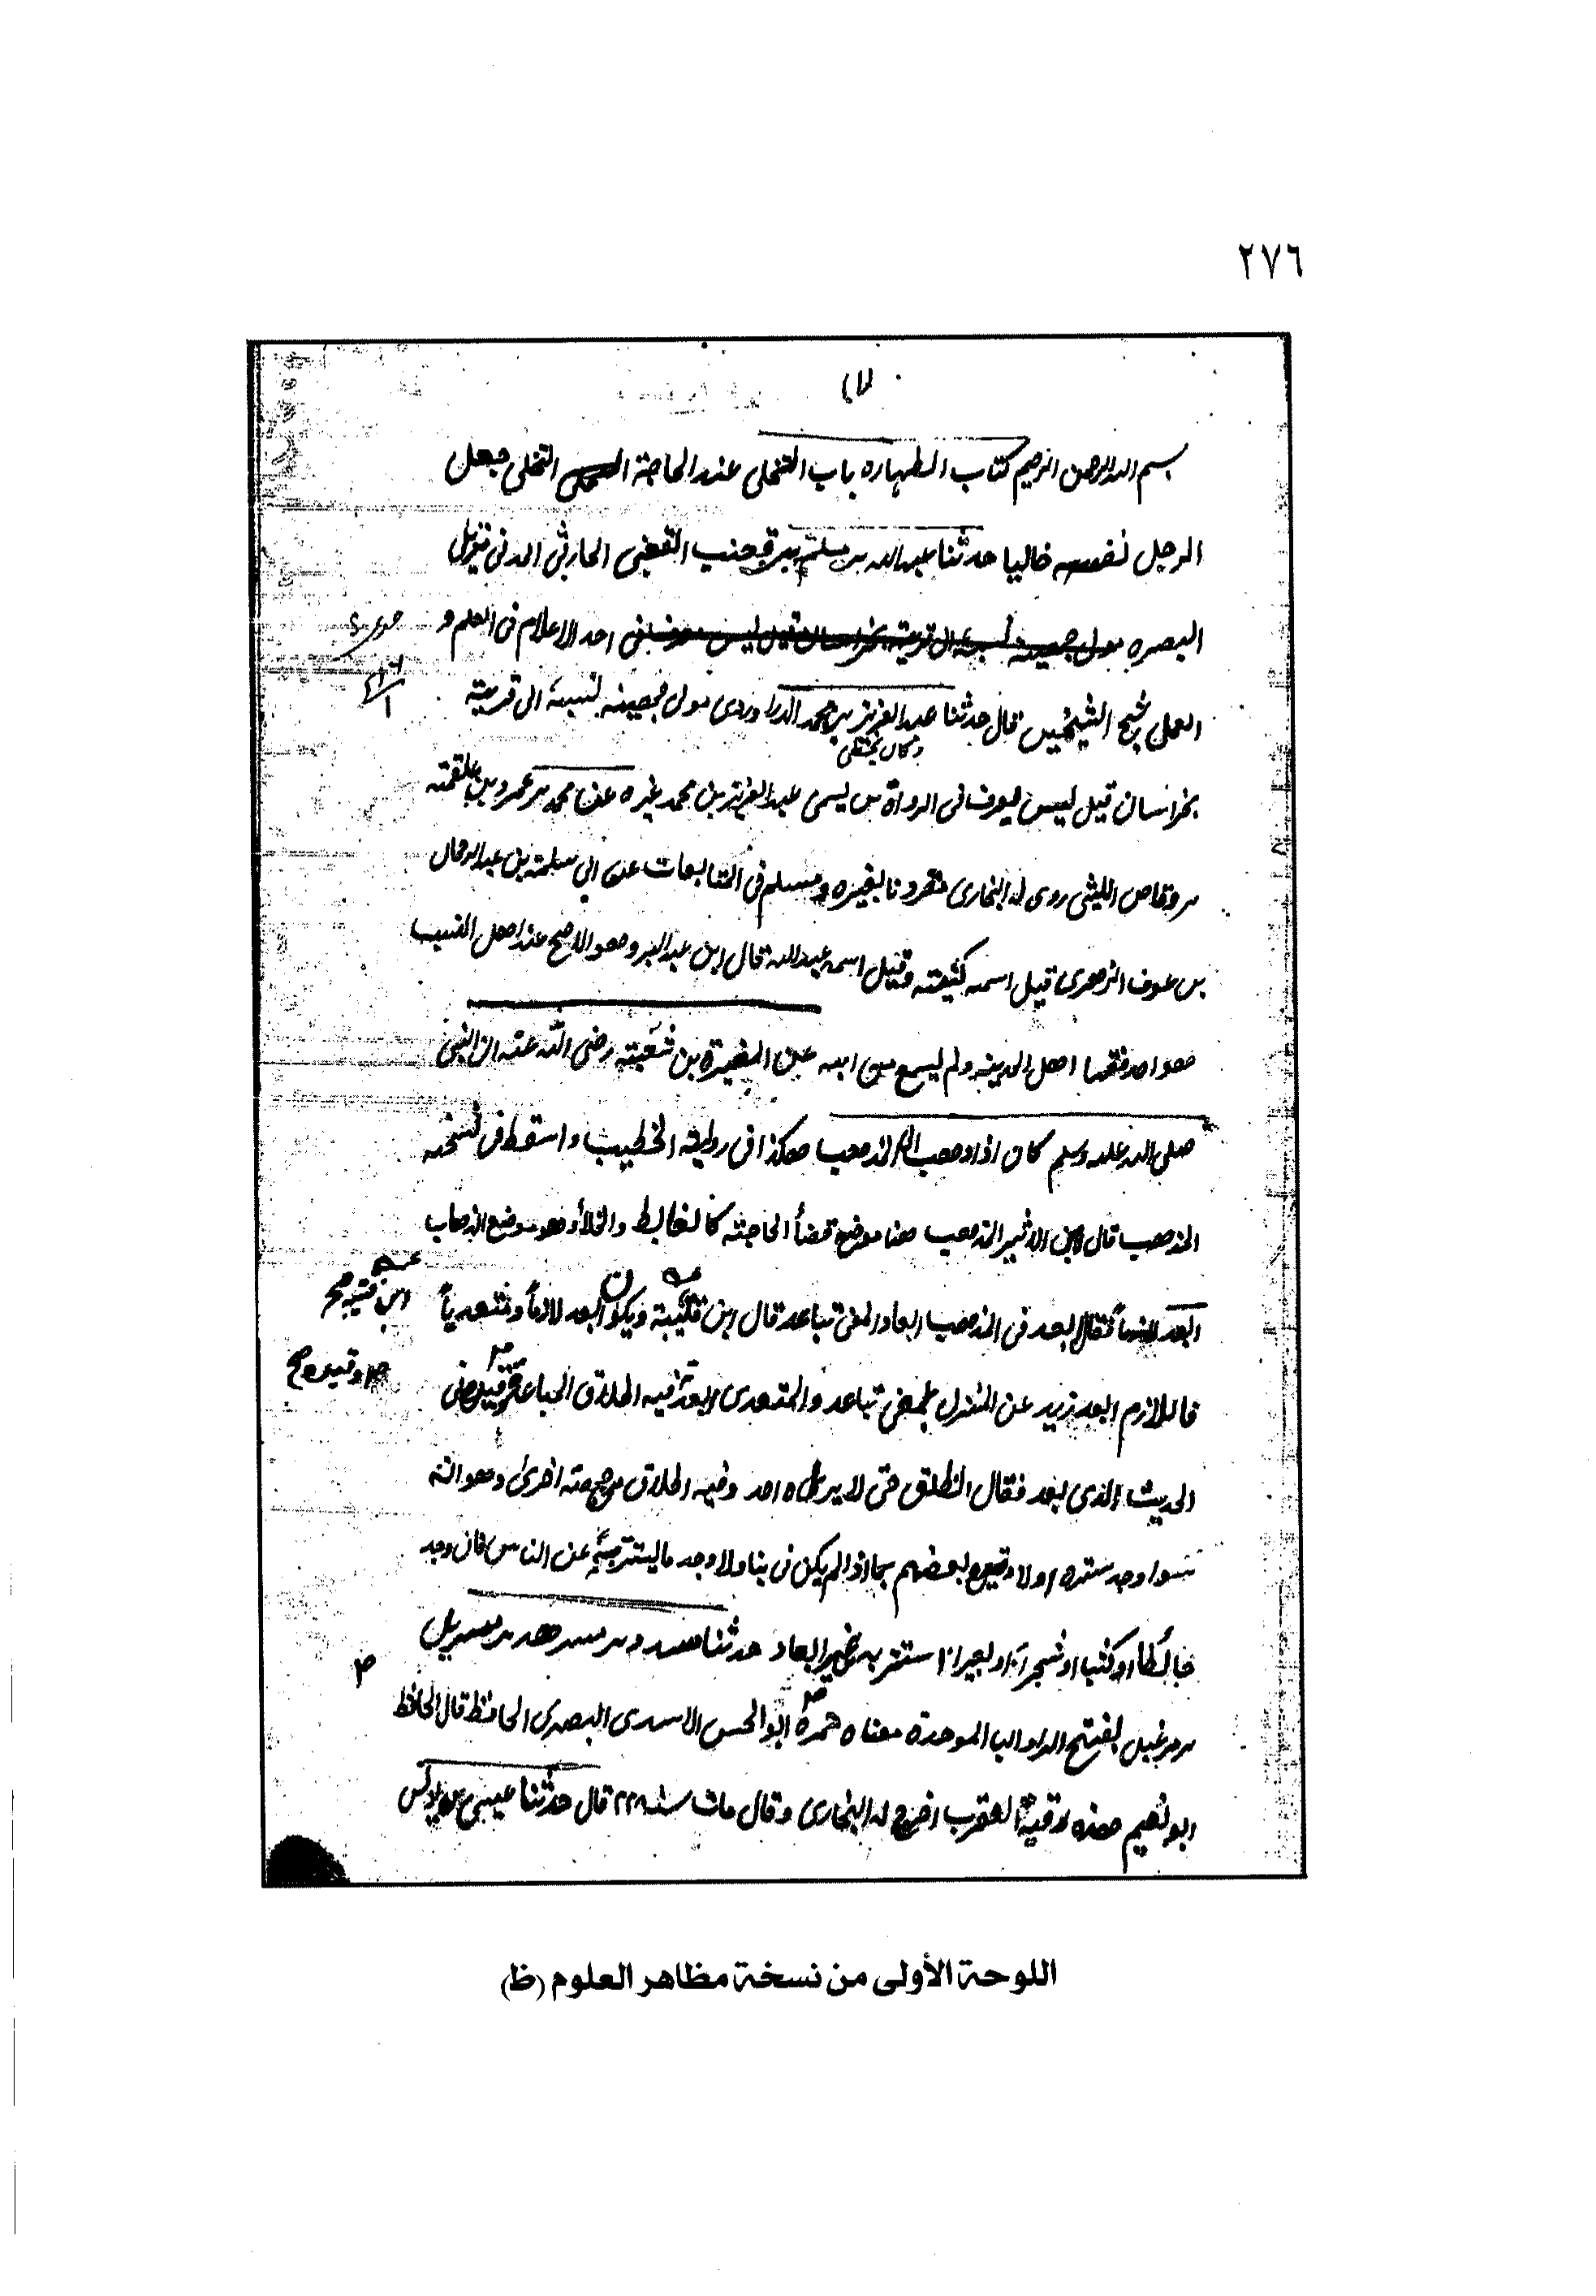 ٢٧٦
(١)
بسم الله الرحمن الرحيم كتاب الطهاره باب التخلى عند الحاجة التخلى جعل
الرجل نفسه خاليا حدثنا عبد الله بن مسلمة بن قعنب القعنبى الحارثى المدنى نزيل
البصره احد الاعلام فى العلم و
العمل شيخ الشيخين قال حدثنا عبد العزيز بن محمد الدراوردى مولى جهينه نسبة الى قرية
وكان يخطى
بخراسان قيل ليس يعرف فى الرواة من يسمى عبد العزيز بن محمد غيره عن محمد بن عمرو بن علقمة
بن وقاص الليثى روى له البخارى مقرونا بغيره و مسلم فى المتابعات عن ابي سلمة بن عبد الرحمان
بن عوف الزهرى قيل اسمه كنيته وقيل اسمه عبد الله قال ابن عبد البر وهو الاصح عند اهل النسب
هو احد فقهاء اهل المدينه ولم يسمع من ابيه عن المغيرة بن شعبة رضى الله عنه ان النبى
صلى الله عليه وسلم كان اذا ذهب المذهب هكذا فى رواية الخطيب واسقط فى نسخه
المذهب قال ابن الاثير المذهب هنا موضع قضأ الحاجة كالغايط والخلأ وهو موضع الذهاب
ابعد فى المذهب ابعاد المعنى تباعد قال ابن قتيبة ويكون ابعد لازماً ومتعدياً
ابن قتيبة صح
فاللازم ابعد زيد عن المنزل بمعنى تباعد والمتعدى ابعدته فيه اطلاق
الحديث الذى بعد فقال انطلق حتى لا يراه احد وفيه اطلاق من جهة اخرى وهو انه
سوا وجد ستره اولا وقيده بعضهم بما اذا لم يكن فى بنا ولا وجد ما يستتر به عن الناس فان وجد
حائطا او كثيبا او شجرا او بعيرا استتر به بغير ابعاد حدثنا مسدد بن مسرهد بن مسربل
بن مرعبل بفتح الرا والبا الموحدة ابو الحسن الاسدى البصرى الحافظ قال الحافظ
ابو نعيم هذه رقية العقرب اخرج له البخارى وقال مات سنة ٢٢٨ قال حدثنا عيسى بن يونس
اللوحة الأولى من نسخة مظاهر العلوم (ظ)